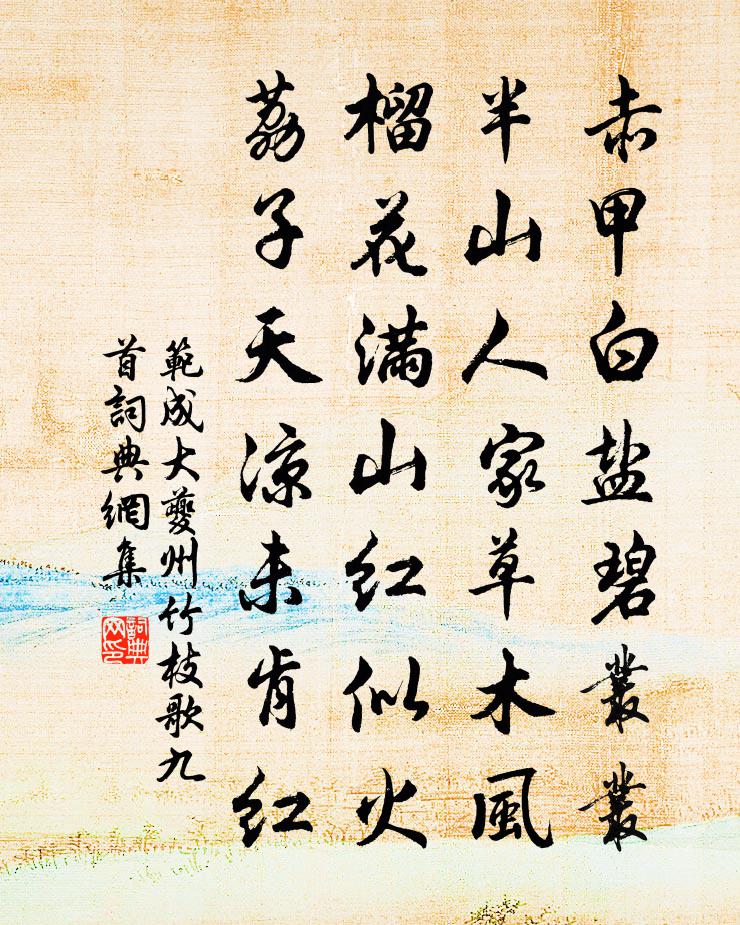 赤甲白盐碧叢叢
半山人家草木風
榴花滿山红似火
荔子天凉未肯红
範成大夔州竹枝歌九
首詞典網集
詞典网印